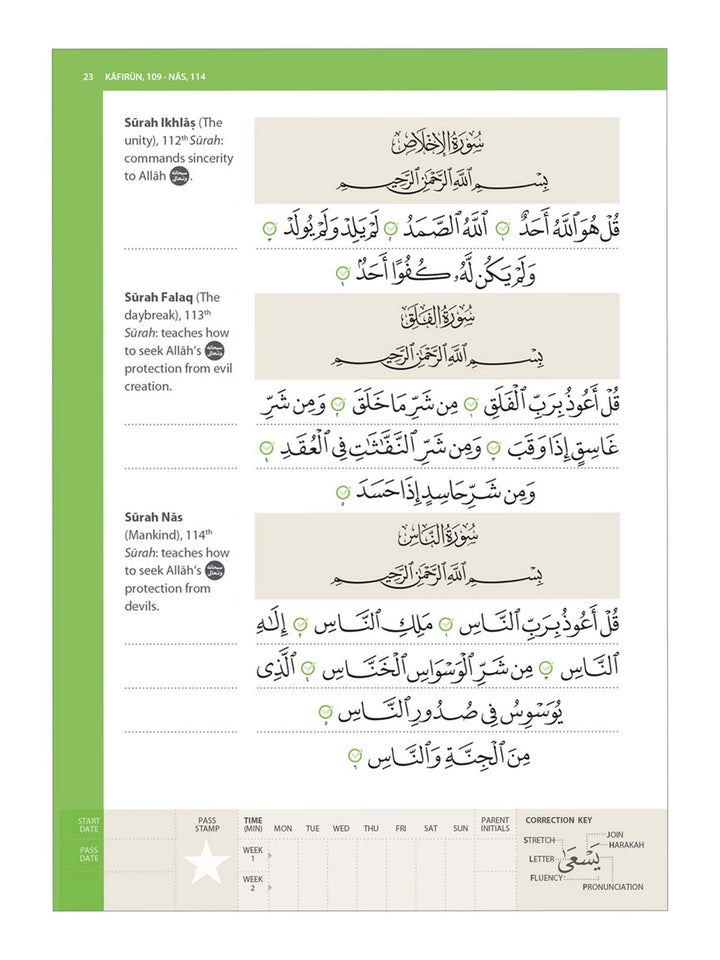 23 KĀFIRŪN, 109 - NĀS, 114
Sūrah Ikhlāṣ (The
unity), 112th Sūrah:
commands sincerity
to Allāh سبحانه وتعالى.
سُورَةُ الإِخْلَاصِ
بِسْمِ اللَّهِ الرَّحْمَٰنِ الرَّحِيمِ
قُلْ هُوَ ٱللَّهُ أَحَدٌ ١ ٱللَّهُ ٱلصَّمَدُ ٢ لَمْ يَلِدْ وَلَمْ يُولَدْ ٣
وَلَمْ يَكُن لَّهُۥ كُفُوًا أَحَدٌۢ ٤
Sūrah Falaq (The
daybreak), 113th
Sūrah: teaches how
to seek Allāh's سبحانه وتعالى
protection from evil
creation.
سُورَةُ الفَلَقِ
بِسْمِ اللَّهِ الرَّحْمَٰنِ الرَّحِيمِ
قُلْ أَعُوذُ بِرَبِّ ٱلْفَلَقِ ١ مِن شَرِّ مَا خَلَقَ ٢ وَمِن شَرِّ
غَاسِقٍ إِذَا وَقَبَ ٣ وَمِن شَرِّ ٱلنَّفَّٰثَٰتِ فِى ٱلْعُقَدِ ٤
وَمِن شَرِّ حَاسِدٍ إِذَا حَسَدَ ٥
Sūrah Nās
(Mankind), 114th
Sūrah: teaches how
to seek Allāh's سبحانه وتعالى
protection from
devils.
سُورَةُ النَّاسِ
بِسْمِ اللَّهِ الرَّحْمَٰنِ الرَّحِيمِ
قُلْ أَعُوذُ بِرَبِّ ٱلنَّاسِ ١ مَلِكِ ٱلنَّاسِ ٢ إِلَٰهِ
ٱلنَّاسِ ٣ مِن شَرِّ ٱلْوَسْوَاسِ ٱلْخَنَّاسِ ٤ ٱلَّذِى
يُوَسْوِسُ فِى صُدُورِ ٱلنَّاسِ ٥
مِنَ ٱلْجِنَّةِ وَٱلنَّاسِ ٦
START DATE
PASS DATE
PASS STAMP
TIME (MIN) MON TUE WED THU FRI SAT SUN PARENT INITIALS
WEEK 1
WEEK 2
CORRECTION KEY
STRETCH
JOIN
HARAKAH
LETTER
يَسْعَىٰ
FLUENCY
PRONUNCIATION